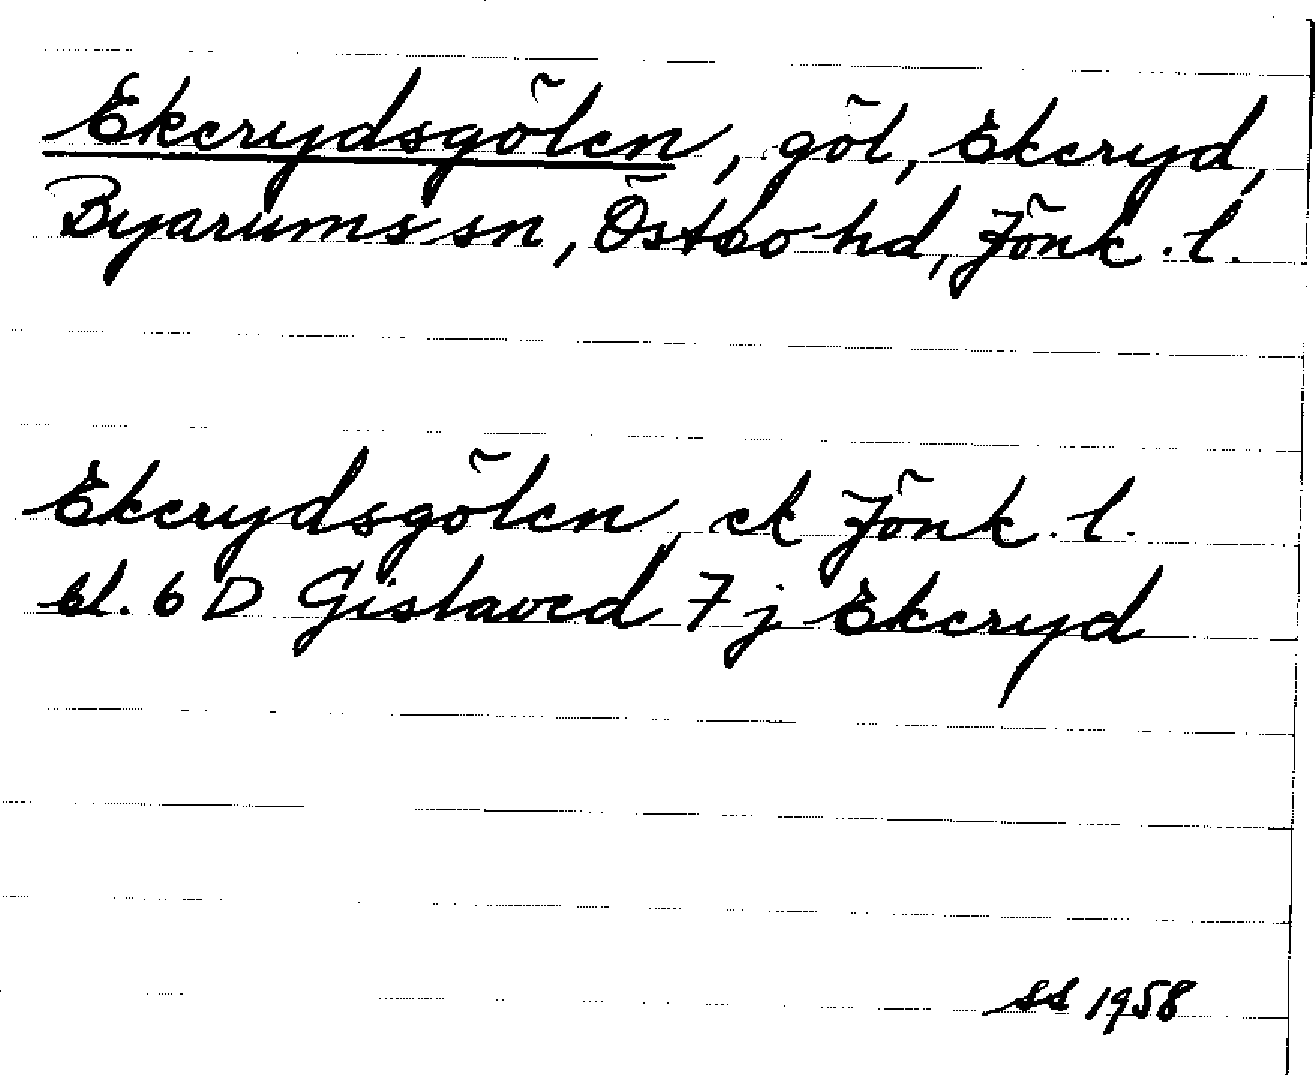 Ekerydsgölen, göl, Ekeryd,
Byarums sn, Östbo hd, Jönk. l.
Ekerydsgölen ek Jönk. l.
bl. 6 D Gislaved 7 j Ekeryd
SS 1958